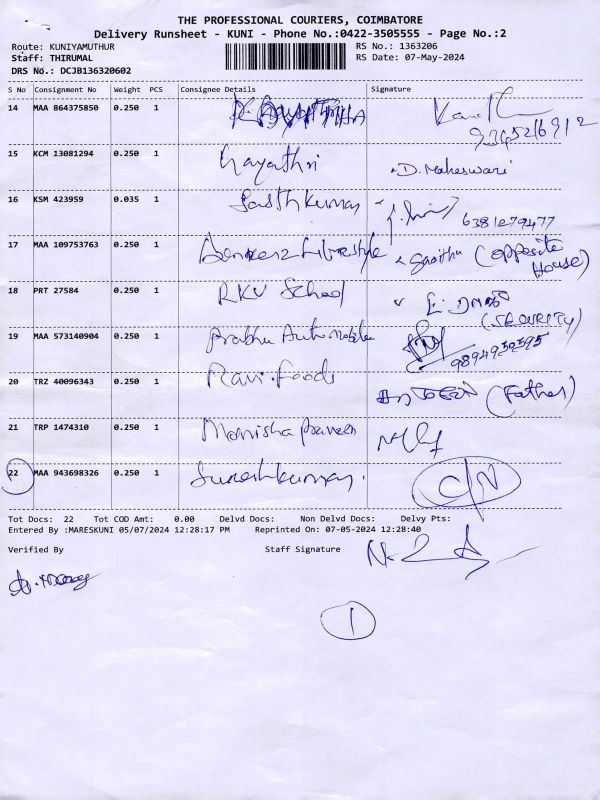 THE PROFESSIONAL COURIERS, COIMBATORE
Delivery Runsheet - KUNI - Phone No.:0422-3505555 - Page No.:2
Route: KUNIYAMUTHUR
RS No.: 1363206
Staff: THIRUMAL
RS Date: 07-May-2024
DRS No.: DCJB136320602
S No Consignment No Weight PCS Consignee Details Signature
14 MAA 864375850 0.250 1
9345216912
15 KCM 13081294 0.250 1 Gayathri D. Maheswari
16 KSM 423959 0.035 1 Sasthkumar 6381279477
17 MAA 109753763 0.250 1 Lifestyle (opposite
House)
18 PRT 27584 0.250 1 RKV School
(SECURITY)
19 MAA 573140904 0.250 1 Prabhu Automobile
9894930395
20 TRZ 40096343 0.250 1 Ravi Foods (Father)
21 TRP 1474310 0.250 1 Monisha praveen
22 MAA 943698326 0.250 1 Sureshkumar. C/N
Tot Docs: 22 Tot COD Amt: 0.00 Delvd Docs: Non Delvd Docs: Delvy Pts:
Entered By :MARESKUNI 05/07/2024 12:28:17 PM Reprinted On: 07-05-2024 12:28:40
Verified By Staff Signature
1